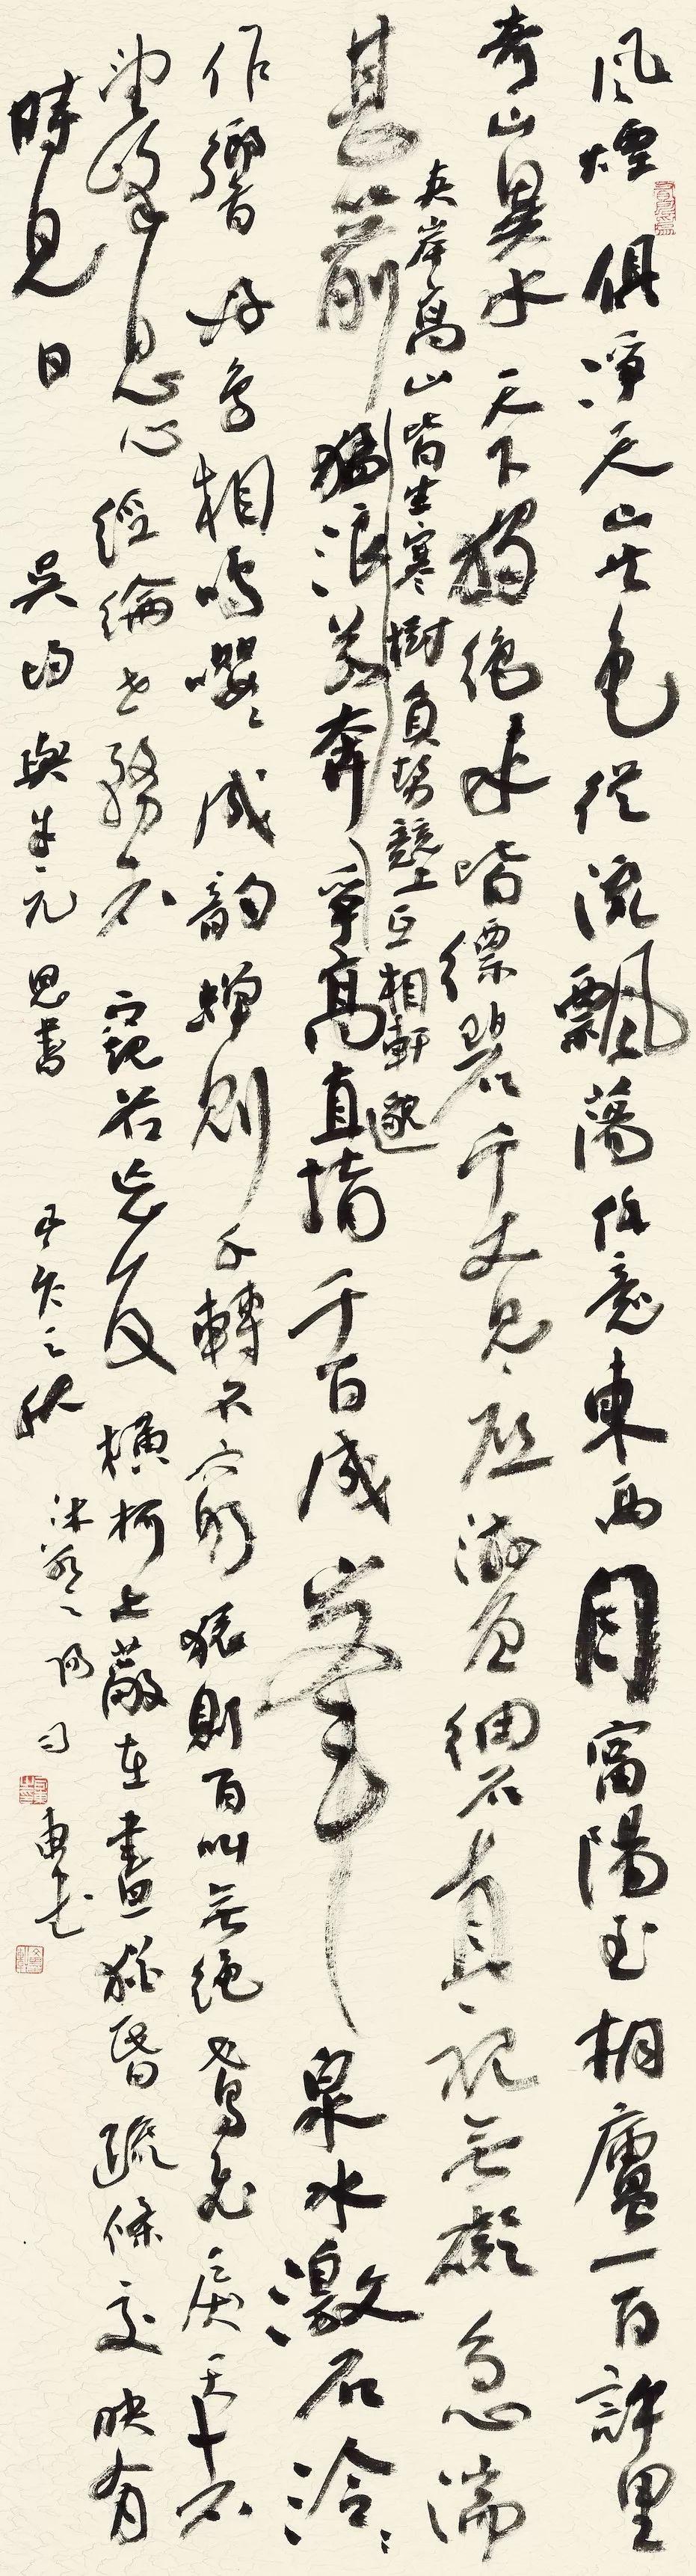 風煙俱淨天山共色從流飄蕩任意東西自富陽至桐廬一百許里
奇山異水天下獨絕水皆縹碧千丈見底游魚細石直視無礙急湍
甚箭猛浪若奔爭高直指千百成峯泉水激石泠泠
夾岸高山皆生寒樹負勢競上互相軒邈
作響好鳥相鳴嚶嚶成韻蟬則千轉不窮猿則百叫無絕鳶飛戾天者
望峰息心經綸世務者窺谷忘反橫柯上蔽在晝猶昏疏條交映有
時見日 吳均與朱元思書 之秋